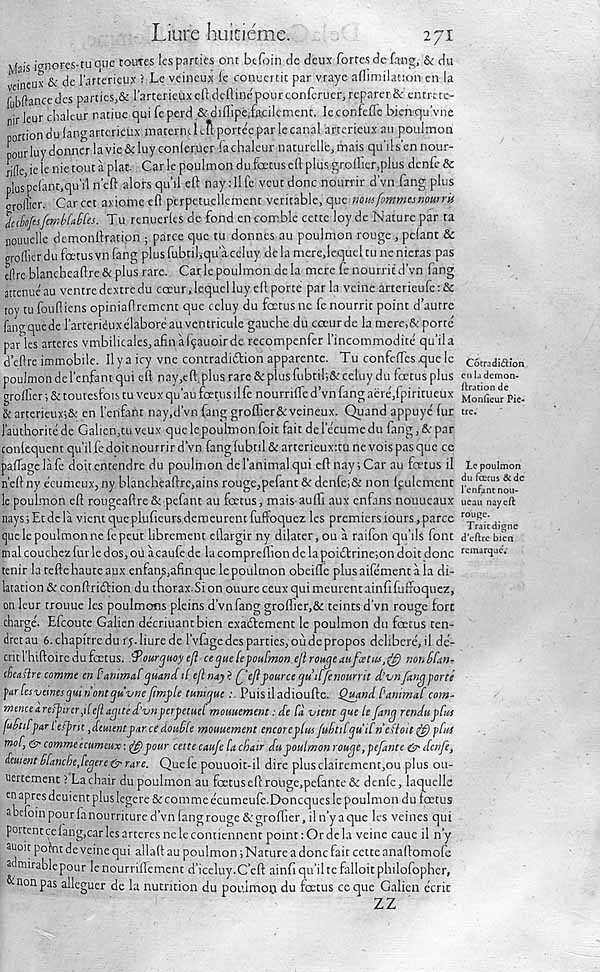 Liure huitiéme. 271
Mais ignores-tu que toutes les parties ont besoin de deux sortes de sang, & du
veineux & de l'arterieux ? Le veineux se conuertit par vraye assimilation en la
substance des parties, & l'arterieux est destiné pour conseruer, reparer & entrete-
nir leur chaleur natiue qui se perd & dissipe facilement. Ie confesse bien qu'vne
portion du sang arterieux maternel est portée par le canal arterieux au poulmon
pour luy donner la vie & luy conseruer sa chaleur naturelle, mais qu'ils'en nour-
risse, ie le nie tout à plat. Car le poulmon du fœtus est plus grossier, plus dense &
plus pesant, qu'il n'est alors qu'il est nay : Il se veut donc nourrir d'vn sang plus
grossier. Car cet axiome est perpetuellement veritable, que nous sommes nourris
de choses semblables. Tu renuerses de fond en comble cette loy de Nature par ta
nouuelle demonstration ; parce que tu donnes au poulmon rouge, pesant &
grossier du fœtus vn sang plus subtil, qu'à celuy de la mere, lequel tu ne nieras pas
estre blancheastre & plus rare. Car le poulmon de la mere se nourrit d'vn sang
attenué au ventre dextre du cœur, lequel luy est porte par la veine arterieuse : &
toy tu soustiens opiniastrement que celuy du fœtus ne se nourrit point d'autre
sang que de l'arterieux élaboré au ventricule gauche du cœur de la mere, & porté
par les arteres vmbilicales, afin à sçauoir de recompenser l'incommodité qu'il a
d'estre immobile. Il y a icy vne contradiction apparente. Tu confesses que le
poulmon de l'enfant qui est nay, est plus rare & plus subtil; & celuy du fœtus plus
grossier ; & toutesfois tu veux qu'au fœtus il se nourrisse d'vn sang aëré, spiritueux
& arterieux; & en l'enfant nay, d'vn sang grossier & veineux. Quand appuyé sur
l'authorité de Galien, tu veux que le poulmon soit fait de l'écume du sang, & par
consequent qu'il se doit nourrir d'vn sang subtil & arterieux: tu ne vois pas que ce
passage là se doit entendre du poulmon de l'animal qui est nay ; Car au fœtus il
n'est ny écumeux, ny blancheastre, ains rouge, pesant & dense; & non seulement
le poulmon est rougeastre & pesant au fœtus, mais aussi aux enfans nouueaux
nays ; Et de là vient que plusieurs demeurent suffoquez les premiers iours, parce
que le poulmon ne se peut librement eslargir ny dilater, ou à raison qu'ils sont
mal couchez sur le dos, où à cause de la compression de la poictrine; on doit donc
tenir la teste haute aux enfans, afin que le poulmon obeisse plus aisément à la di-
latation & constriction du thorax. Si on ouure ceux qui meurent ainsi suffoquez,
on leur trouue les poulmons pleins d'vn sang grossier, & teints d'vn rouge fort
chargé. Escoute Galien décriuant bien exactement le poulmon du fœtus ten-
dret au 6. chapitre du 15. liure de l'vsage des parties, où de propos deliberé, il dé-
crit l'histoire du fœtus. Pourquoy est-ce que le poulmon est rouge au fœtus, & non blan-
cheastre comme en l'animal quand il est nay ? C'est pource qu'il se nourrit d'vn sang porté
par les veines qui n'ont qu'vne simple tunique : Puis il adiouste. Quand l'animal com-
mence à respirer, il est agité d'vn perpetuel mouuement : de là vient que le sang rendu plus
subtil par l'esprit, deuient par ce double mouuement encore plus subtil qu'il n'estoit & plus
mol, & comme écumeux : & pour cette cause la chair du poulmon rouge, pesante & dense,
deuient blanche, legere & rare. Que se pouuoit-il dire plus clairement, ou plus ou-
uertement ? La chair du poulmon au fœtus est rouge, pesante & dense, laquelle
en apres deuient plus legere & comme écumeuse. Doncques le poulmon du fœtus
a besoin pour sa nourriture d'vn sang rouge & grossier, il n'y a que les veines qui
portent ce sang, car les arteres ne le contiennent point : Or de la veine caue il n'y
auoit point de veine qui allast au poulmon ; Nature a donc fait cette anastomose
admirable pour le nourrissement d'iceluy. C'est ainsi qu'il te falloit philosopher,
& non pas alleguer de la nutrition du poulmon du fœtus ce que Galien écrit
ZZ
Cõtradiction
en la demon-
stration de
Monsieur Pie-
tre.
Le poulmon
du fœtus & de
l'enfant nou-
ueau nay est
rouge.
Trait digne
d'estre bien
remarqué.